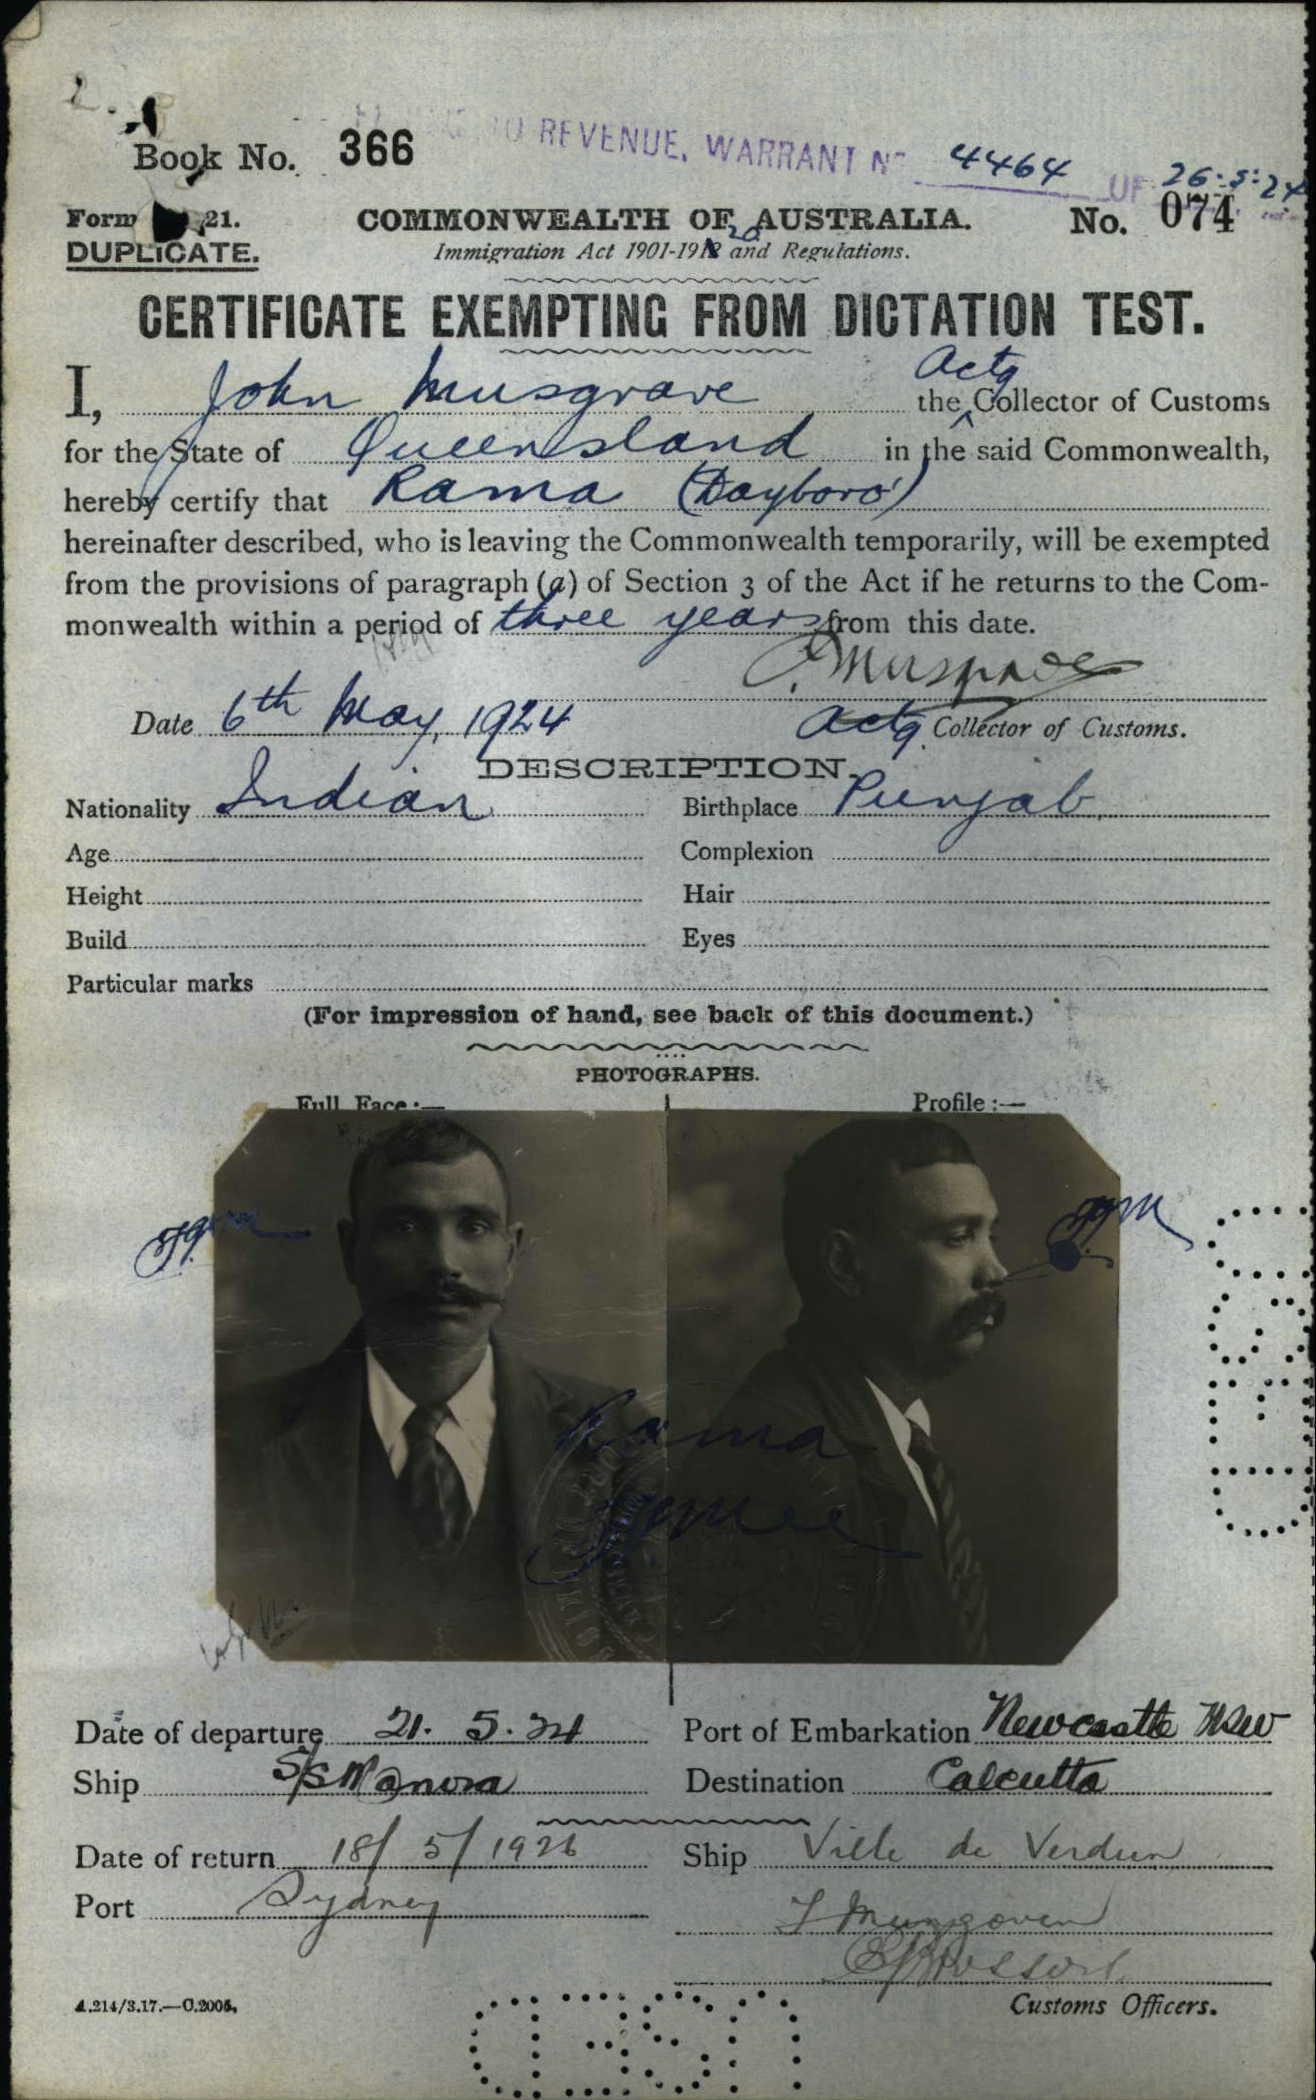 2.
REVENUE, WARRANT No 4464 OF 26.5.24
Book No. 366
Form 21.
COMMONWEALTH OF AUSTRALIA.
No. 074
DUPLICATE.
Immigration Act 1901-1912 20 and Regulations.
CERTIFICATE EXEMPTING FROM DICTATION TEST.
I, John Musgrave the Actg Collector of Customs
for the State of Queensland in the said Commonwealth,
hereby certify that Rama (Dayboro')
hereinafter described, who is leaving the Commonwealth temporarily, will be exempted
from the provisions of paragraph (a) of Section 3 of the Act if he returns to the Com-
monwealth within a period of three years from this date.
J. Musgrave
Date 6th May, 1924
Actg. Collector of Customs.
DESCRIPTION.
Nationality Indian Birthplace Punjab.
Age Complexion
Height Hair
Build Eyes
Particular marks
(For impression of hand, see back of this document.)
PHOTOGRAPHS.
Full Face :— Profile :—
Rama
Date of departure 21. 5. 24 Port of Embarkation Newcastle NSW
Ship S/S Manora Destination Calcutta
Date of return 18/ 5/ 1926 Ship Ville de Verdun
Port Sydney
Customs Officers.
A.214/3.17.—C.2005.